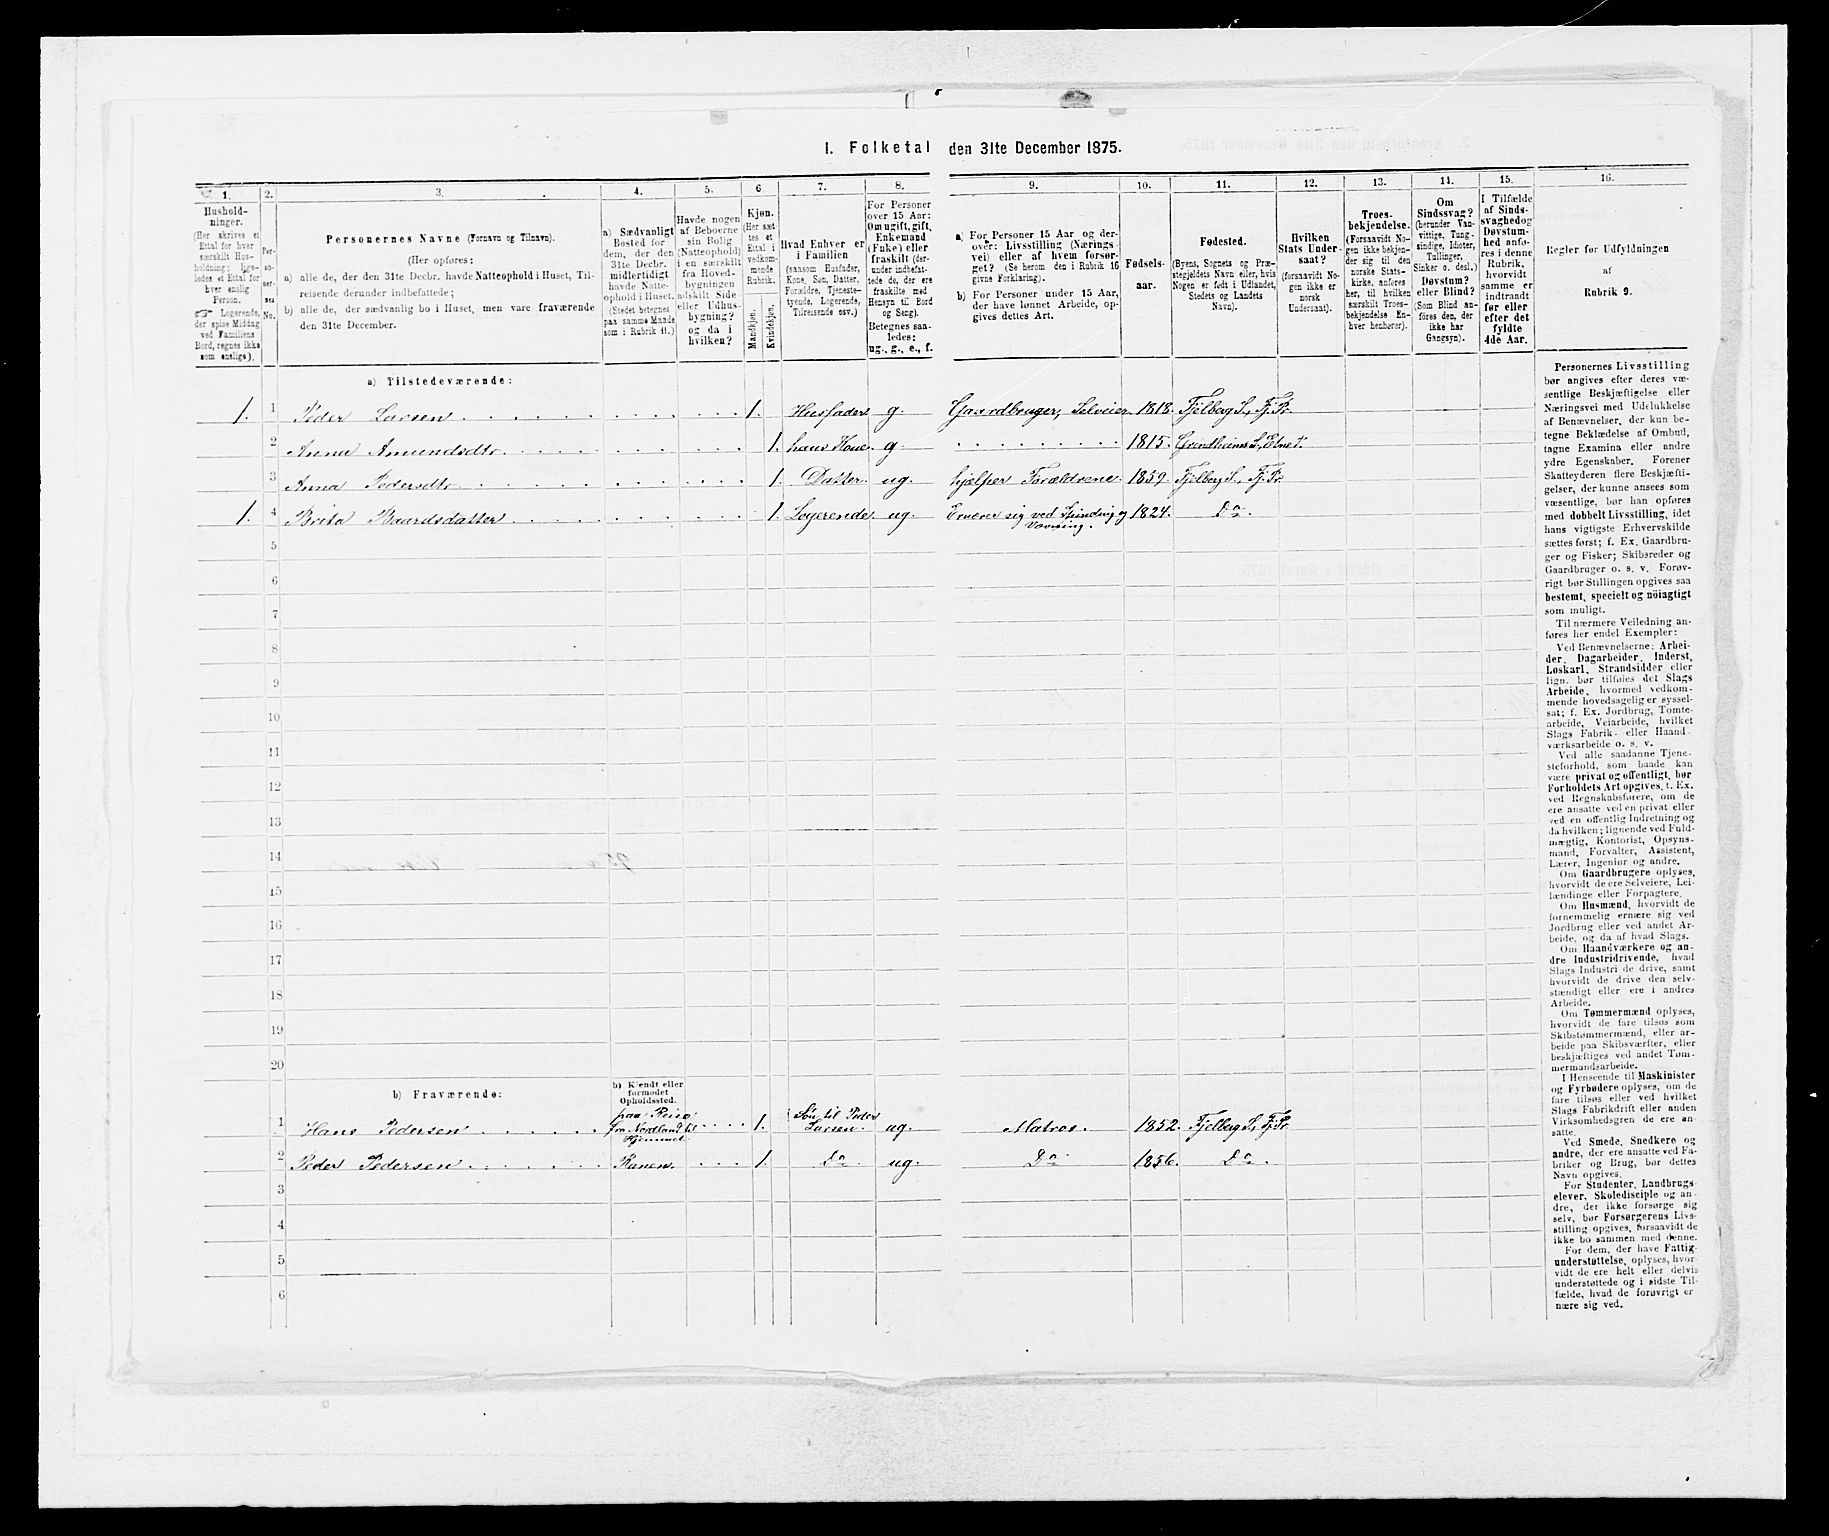 I. Folketal den 31te December 1875.
1. 2. 3. 4. 5. 6 7. 8. 9. 10. 11. 12. 13. 14. 15. 16.
Hushold-
ninger.
(Her skrives et
Ettal for hver
særskilt Hus-
holdning; lige-
ledes et Ettal for
hver enslig
Person.
☞ Logerende,
der spise Middag
ved Familiens
Bord, regnes ikke
som enslige).
Per-
so-
ner-
nes
No.
Personernes Navne (Fornavn og Tilnavn).
(Her opføres:
a) alle de, der den 31te Decbr. havde Natteophold i Huset, Til-
reisende derunder indbefattede;
b) alle de, der sædvanlig bo i Huset, men vare fraværende
den 31te December.
a) Sædvanligt
Bosted for
dem, der den
31te Decbr.
midlertidigt
havde Natte-
ophold i Huset.
(Stedet betegnes
paa samme Maade
som i Rubrik 11.)
Havde nogen
af Beboerne
sin Bolig
(Natteophold)
i en særskilt
fra Hoved-
bygningen
adskilt Side-
eller Udhus-
bygning?
og da i
hvilken?
Kjøn.
(Her sæt
tes et
Ettal i
vedkom-
mende
Rubrik.
Mandkjøn.
Kvindekjøn.
Hvad Enhver er
i Familien
(saasom Husfader,
Kone, Søn, Datter,
Forældre, Tjeneste-
tyende, Logerende,
Tilreisende osv.)
For Personer
over 15 Aar:
Om ugift, gift,
Enkemand
(Enke) eller
fraskilt (der-
under indbefat-
tede de, der ere
fraskilte med
Hensyn til Bord
og Seng).
Betegnes saa-
ledes:
ug., g., e., f.
a) For Personer 15 Aar og der-
over: Livsstilling (Nærings-
vei) eller af hvem forsør-
get? (Se herom den i Rubrik 16
givne Forklaring).
b) For Personer under 15 Aar,
der have lønnet Arbeide, op-
gives dettes Art.
Fødsels-
aar.
Fødested.
(Byens, Sognets og Præ-
stegjeldets Navn eller, hvis
Nogen er født i Udlandet,
Stedets og Landets
Navn).
Hvilken
Stats Under-
saat?
(forsaavidt No-
gen ikke er
norsk
Undersaat).
Troes-
bekjendelse.
(Forsaavidt No-
gen ikke bekjen-
der sig til den
norske Stats-
kirke, anføres
her, til hvilken
særskilt Troes-
bekjendelse En-
hver henhører).
Om
Sindssvag?
(herunder Van-
vittige, Tung-
sindige, Idioter,
Tullinger,
Sinker o. desl.)
Døvstum?
eller Blind?
(Som Blind an-
føres den, der
ikke har
Gangsyn).
I Tilfælde
af Sinds-
svaghed og
Døvstum-
hed anfø-
res i denne
Rubrik,
hvorvidt
samme er
indtraadt
før eller
efter det
fyldte
4de Aar.
Regler før Udfyldningen
af
Rubrik 9.
a) Tilstedeværende:
1. 1 Peder Larsen 1. Huusfader g. Gaardbruger, Selveier 1818. Fjelberg S., Fj. Pr.
2 Anna Amundsdtr. 1. hans Kone. g. 1815. Grindheims S., Etne P.
3 Anna Pedersdtr. 1. Datter. ug. hjælper Forældrene. 1859. Fjelberg S., Fj. Pr.
1. 4 Brita Baardsdatter 1. Logerende ug. Ernærer sig ved Spinding og
Vævning. 1824. Do.
5
6
7
8
9
10
11
12
13
14
15
16
17
18
19
20
b) Fraværende:
b) Kjendt eller
formodet
Opholdssted.
1 Hans Pedersen paa Reise
fra Nordland til
Hjemmet 1. Søn til Peder
Larsen. ug. Matros. 1852. Fjelberg S., Fj. Pr.
2 Peder Pedersen Ranen. 1. Do. ug. Do. 1856. Do.
3
4
5
6
Personernes Livsstilling
bør angives efter deres væ-
sentlige Beskjæftigelse eller
Næringsvei med Udelukkelse
af Benævnelser, der kun be-
tegne Beklædelse af Ombud,
tagne Examina eller andre
ydre Egenskaber. Forener
Skatteyderen flere Beskjæfti-
gelser, der kunne ansees som
væsentlige, bør han opføres
med dobbelt Livsstilling, idet
hans vigtigste Erhvervskilde
sættes først; f. Ex. Gaardbru-
ger og Fisker; Skibsreder og
Gaardbruger o. s. v. Forøv-
rigt bør Stillingen opgives saa
bestemt, specielt og nöiagtigt
som muligt.
Til nærmere Veiledning an-
føres her endel Exempler:
Ved Benævnelserne: Arbei-
der, Dagarbeider, Inderst,
Løskarl, Strandsidder eller
lign. bør tilføies det Slags
Arbeide, hvormed vedkom-
mende hovedsagelig er syssel-
sat; f. Ex. Jordbrug, Tomte-
arbeide, Veiarbeide, hvilket
Slags Fabrik- eller Haand-
værksarbeide o. s. v.
Ved alle saadanne Tjene-
steforhold, som baade kan
være privat og offentligt, bør
Forholdets Art opgives, t. Ex.
ved Regnskabsførere, om de
ere ansatte ved en privat eller
ved en offentlig Indretning og
da hvilken; lignende ved Fuld-
mægtig, Kontorist, Opsyns-
mand, Forvalter, Assistent,
Lærer, Ingeniør og andre.
Om Gaardbrugere oplyses,
hvorvidt de ere Selveiere, Lei-
lændinge eller Forpagtere.
Om Husmænd, hvorvidt de
fornemmelig ernære sig ved
Jordbrug eller ved andet Ar-
beide, og da af hvad Slags.
Om Haandværkere og an-
dre Industridrivende, hvad
Slags Industri de drive, samt
hvorvidt de drive den selv-
stændigt eller ere i andres
Arbeide.
Om Tømmermænd oplyses,
hvorvidt de fare tilsøs som
Skibstømmermænd, eller ar-
beide paa Skibsværfter, eller
beskjæftiges ved andet Tøm-
mermandsarbeide.
I Henseende til Maskinister
og Fyrbødere oplyses, om de
fare tilsøs eller ved hvilket
Slags Fabrikdrift eller anden
Virksomhedsgren de ere an-
satte.
Ved Smede, Snedkere og
andre, der ere ansatte ved Fa-
briker og Brug, bør dettes
Navn opgives.
For Studenter, Landbrugs-
elever, Skoledisciple og an-
dre, der ikke forsørge sig
selv, bør Forsørgerens Livs-
stilling opgives, forsaavidt de
ikke bo sammen med denne.
For dem, der have Fattig-
understøttelse, oplyses, hvor-
vidt de ere helt eller delvis
understøttede og i sidste Til-
fælde, hvad de forøvrigt er-
nære sig ved.